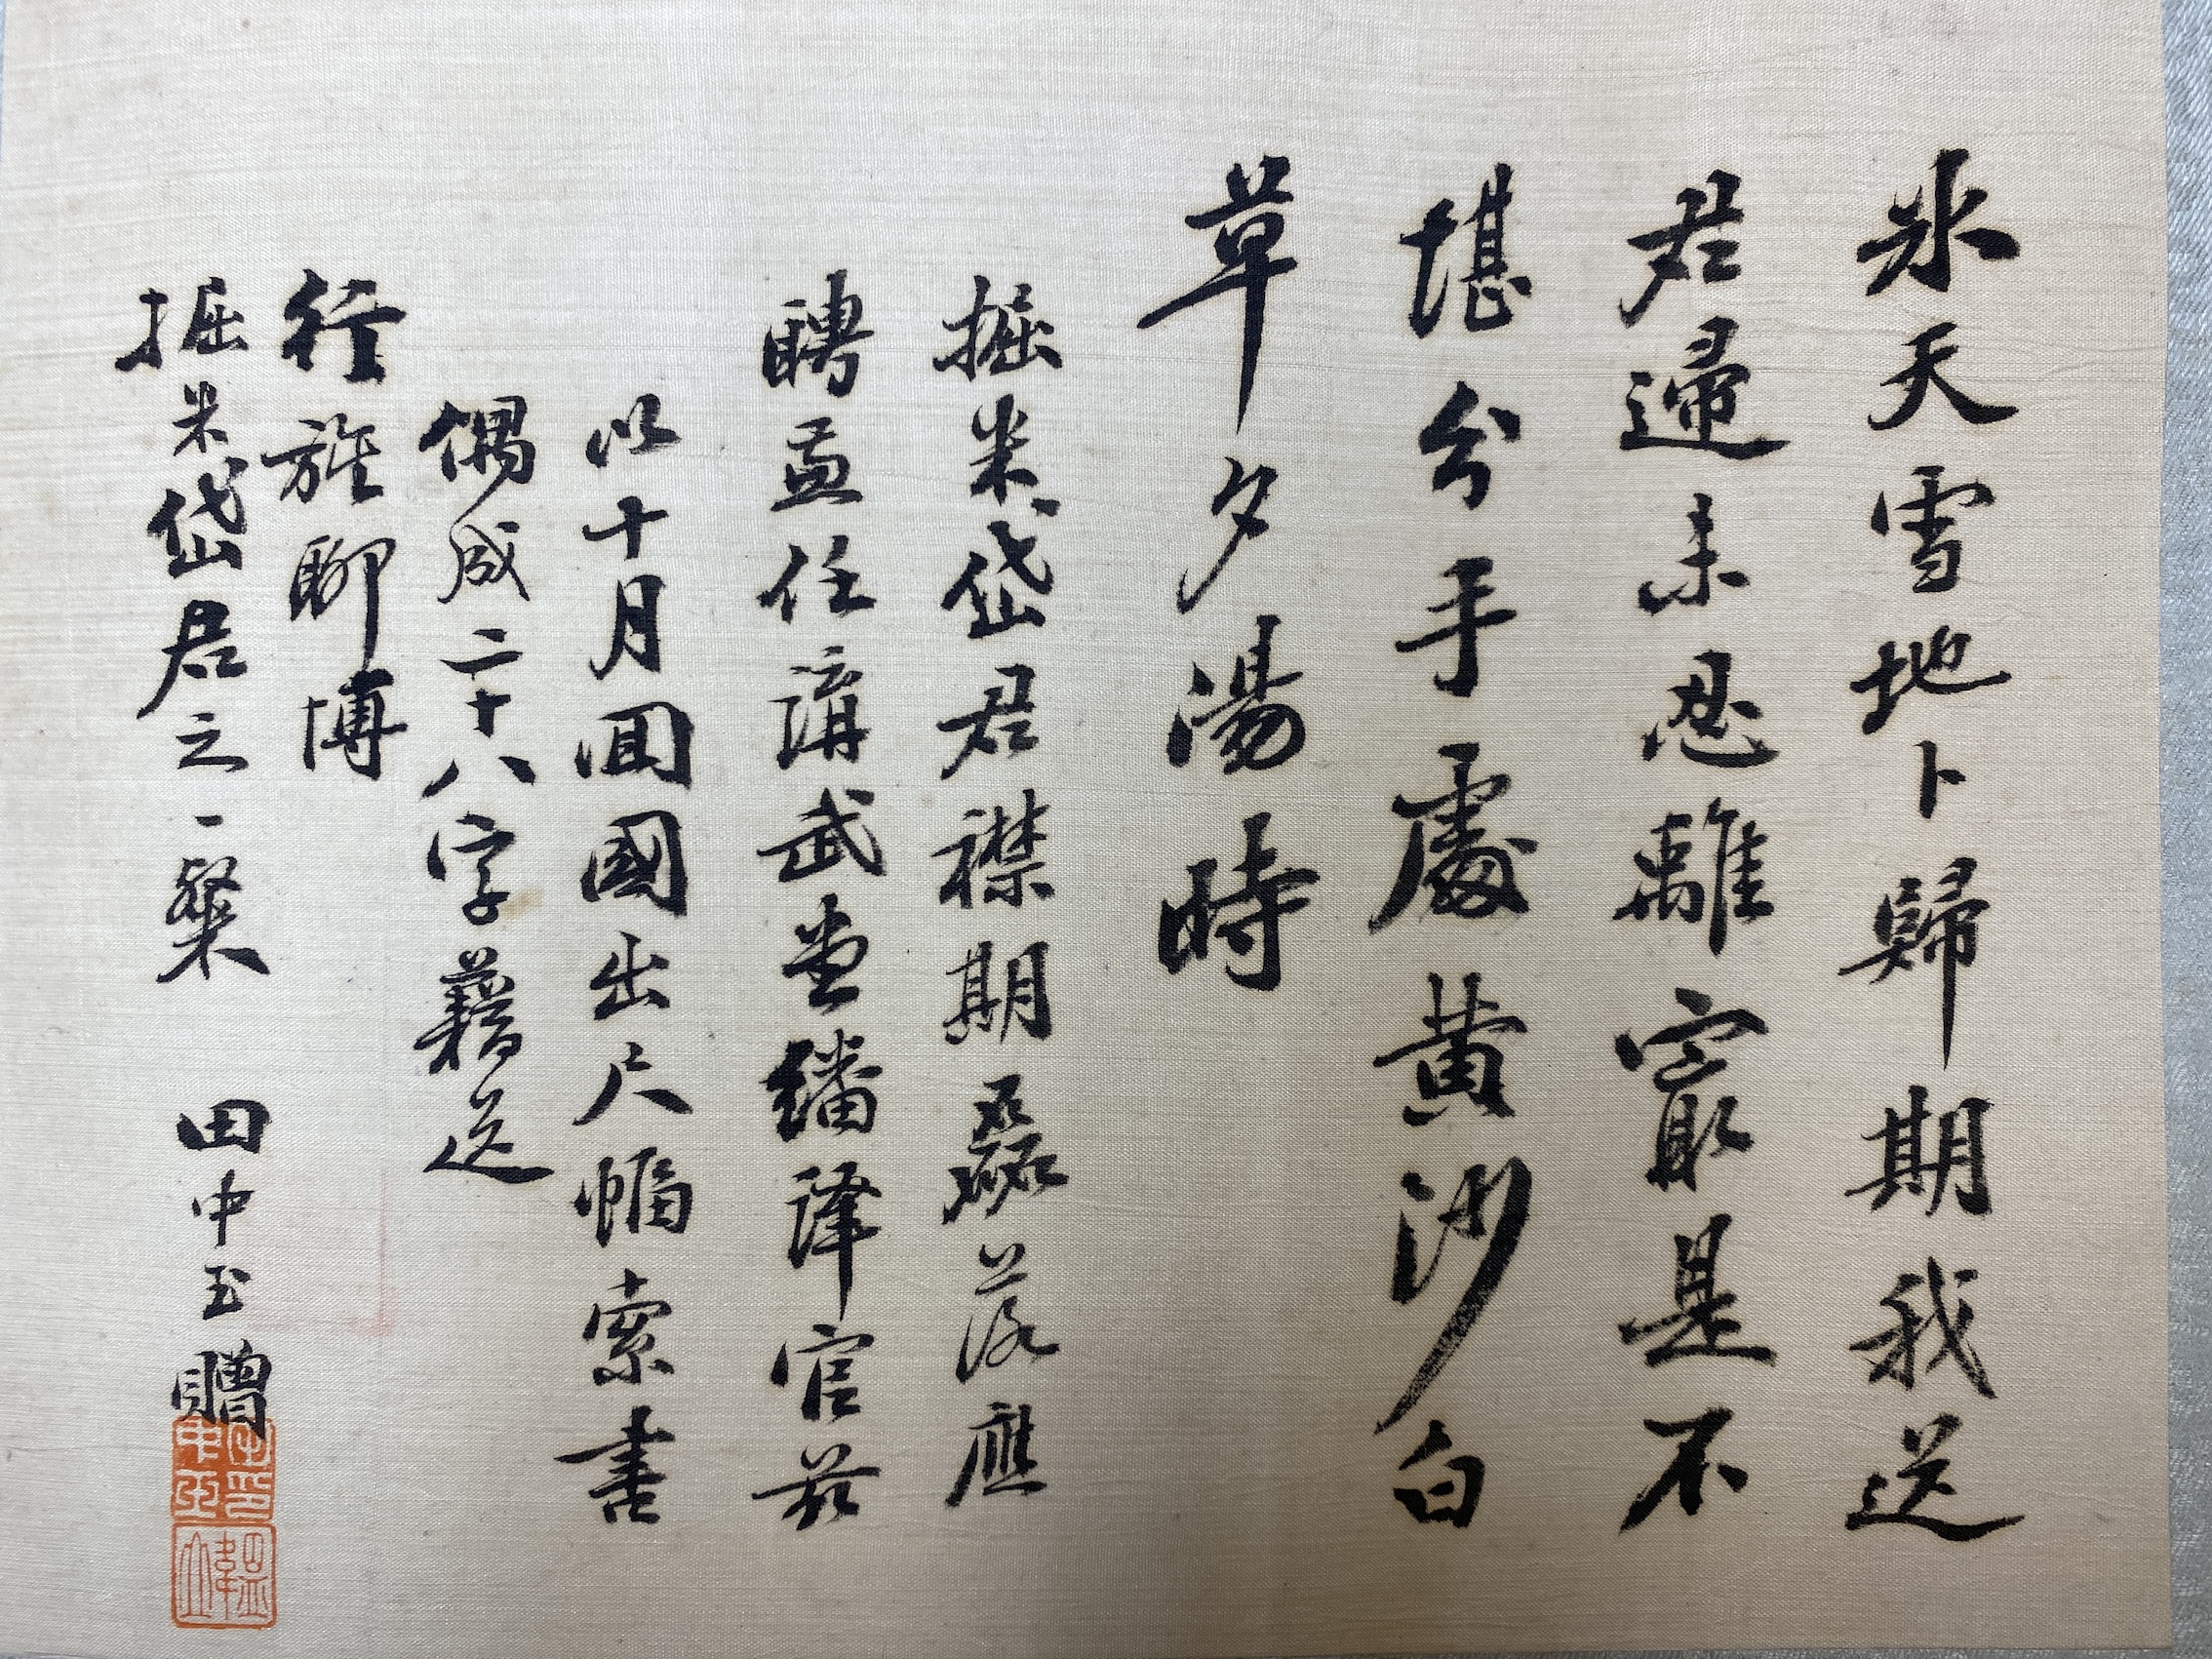 氷天雪地卜歸期我送
君還未忍離最是不
堪分手處黃沙白
草夕陽時
掘米岱君襟期磊落應
聘孟任講武堂繙譯官茲
以十月囬國出尺幅索書
偶成二十八字藉送
行旌聊博
掘米岱君之一粲 田中玉贈